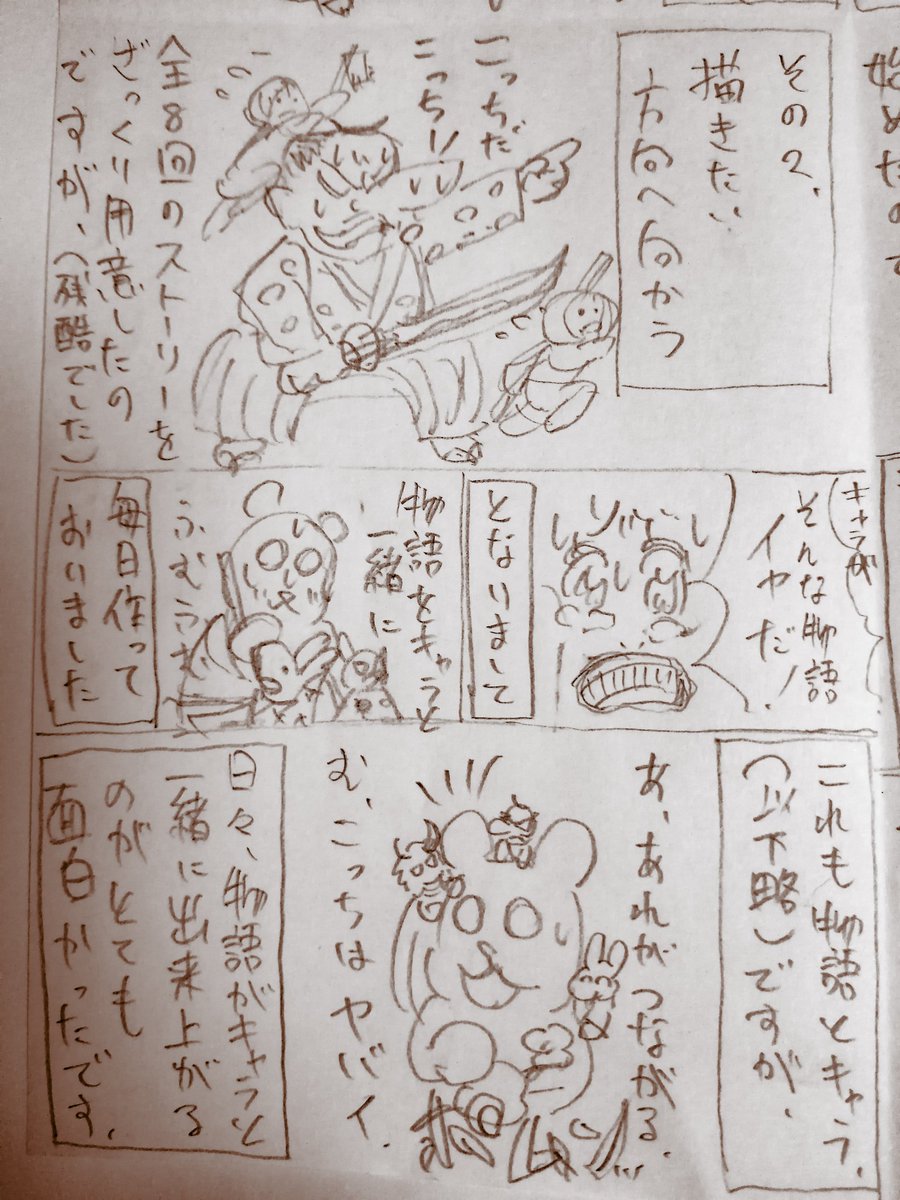 始めたので
その2、
描きたい
方向へ向かう
こっちだ
こっち!!
全8回のストーリーを
ざっくり用意したの
ですが、(残酷でした)
キャラが
そんな物語
イヤだ!
となりまして
物語をキャラと
一緒に
ふむふむ
毎日作って
おりました
これも物語とキャラ、
(以下略)ですが、
あ、あれがつながる、
む、こっちはヤバイ、
日々、物語がキャラと
一緒に出来上がる
のがとても
面白かったです、